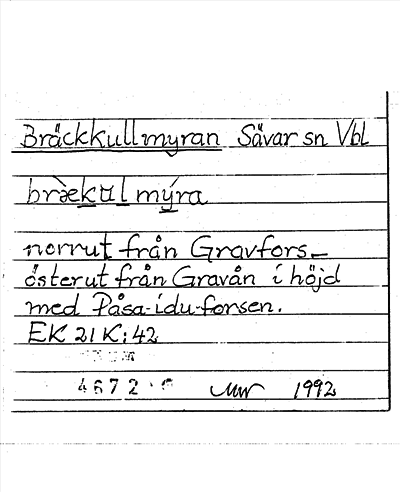 Bräckkullmyran Sävar sn Vbl
bræ̀kʉlmýra
norrut från Gravfors –
österut från Gravån i höjd
med Påsa-idu-forsen.
EK 21K:42
4672
1992